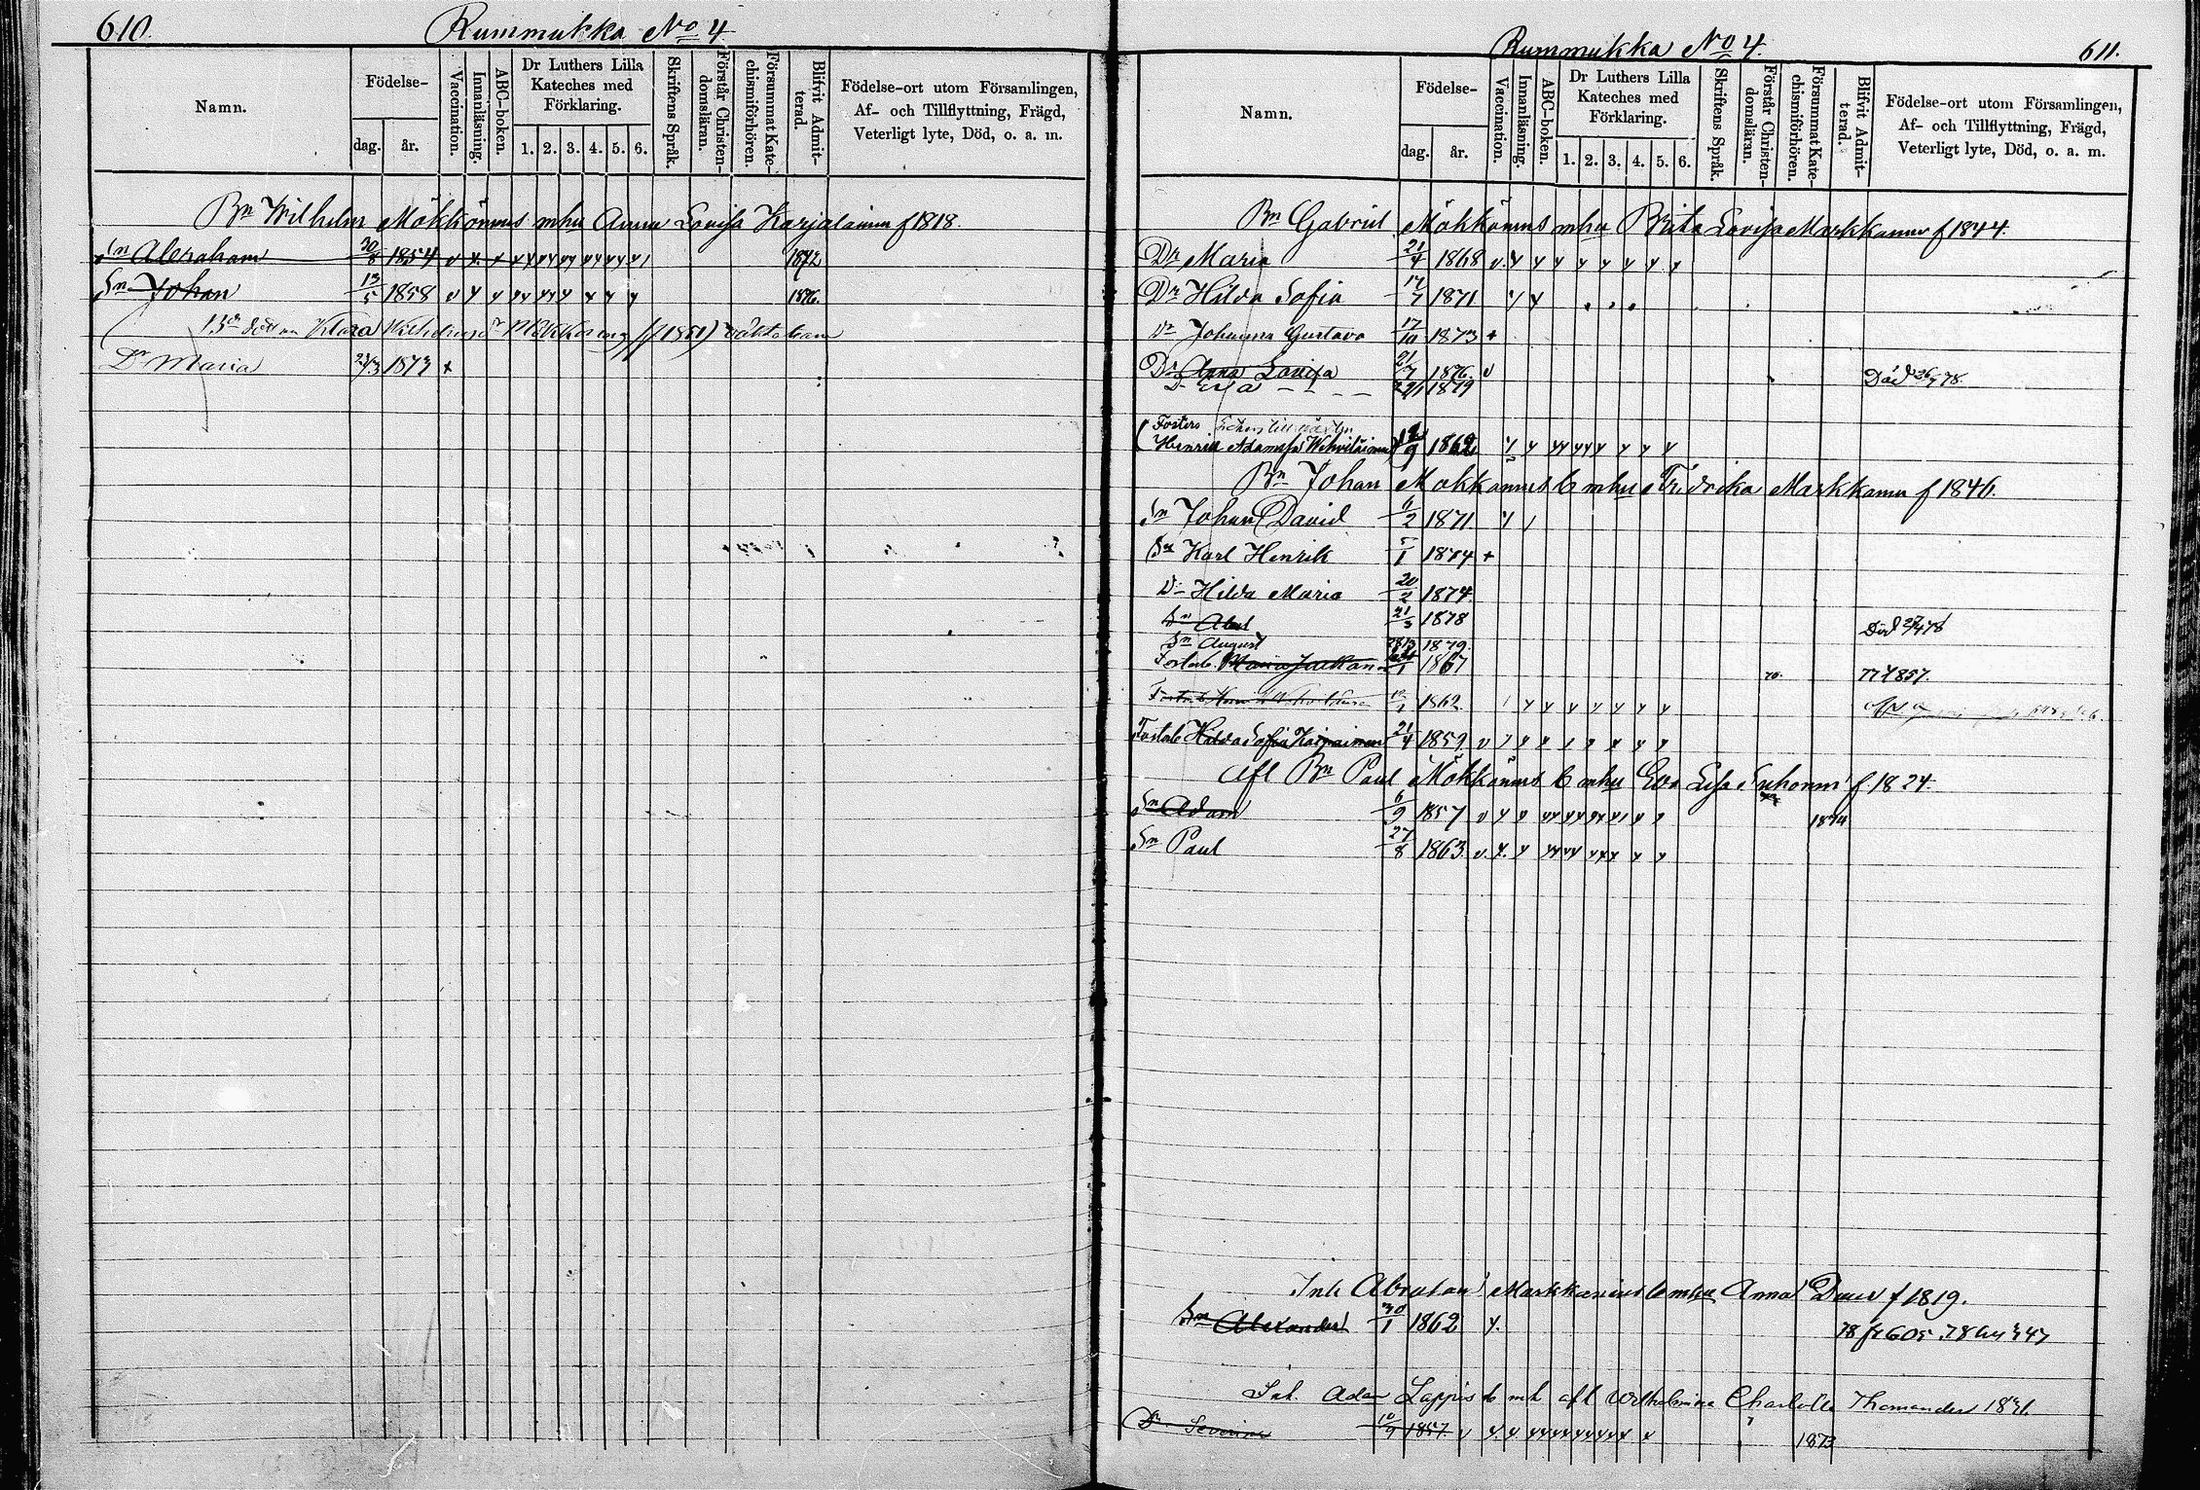 610.
Rummukka No 4
Namn.
Födelse-
dag.
år.
Vaccination.
Innanläsning.
ABC-boken.
Dr Luthers Lilla Kateches med Förklaring.
1. 2. 3. 4. 5. 6.
Skriftens Språk.
Förstår Christen-domsläran.
Försummat Kate-chismiförhören.
Blifvit Admit-terad.
Födelse-ort utom Församlingen,
Af- och Tillflyttning, Frägd,
Veterligt lyte, Död, o. a. m.
Bn Wilhelm Mökkönens mhu Anna Lovisa Karjalainen f 1818.
Sn Abraham 30/8 1854 1872
Sn Johan 13/5 1858 1876.
Klara
Dr Maria 1873 +
Rummukka No 4.
611.
Namn.
Födelse-
dag.
år.
Vaccination.
Innanläsning.
ABC-boken.
Dr Luthers Lilla Kateches med Förklaring.
1. 2. 3. 4. 5. 6.
Skriftens Språk.
Förstår Christen-domsläran.
Försummat Kate-chismiförhören.
Blifvit Admit-terad.
Födelse-ort utom Församlingen,
Af- och Tillflyttning, Frägd,
Veterligt lyte, Död, o. a. m.
Bn Gabriel Mökkönens mhu Brita Lovisa Markkanen f 1844.
Dr Maria 21/4 1868
Dr Hilda Sofia 17/7 1871
Dr Johanna Gustava 17/10 1873 +
Dr Anna Lovisa 21/7 1876. Död 26/4 78.
Dr Eva 1879
Henrik Adamsson 1862
Bn Johan Mökkönens b mhu Fredrika Markkanen f 1846.
Sn Johan David 6/2 1871
Sn Karl Henrik 5/1 1874 +
Dr Hilda Maria 20/2 1874.
Sn Abel 21/3 1878 Död
Sn August 1879.
Maria 1867 77 f 857.
1862
Hilda Sofia Karjainen 21/4 1859
Afl Bn Paul Mökkönens b mhu Eva Lisa Suhonen f 1824.
Sn Adam 6/9 1857 1874
Sn Paul 27/8 1863
Inh Abraham Markkanens b mhu Anna f 1819.
Sn Alexander 30/1 1862
Inh. Adam Lappis b mh afl Wilhelmina Charlotta Thomander
Dr Severina 10/9 1857. 1873